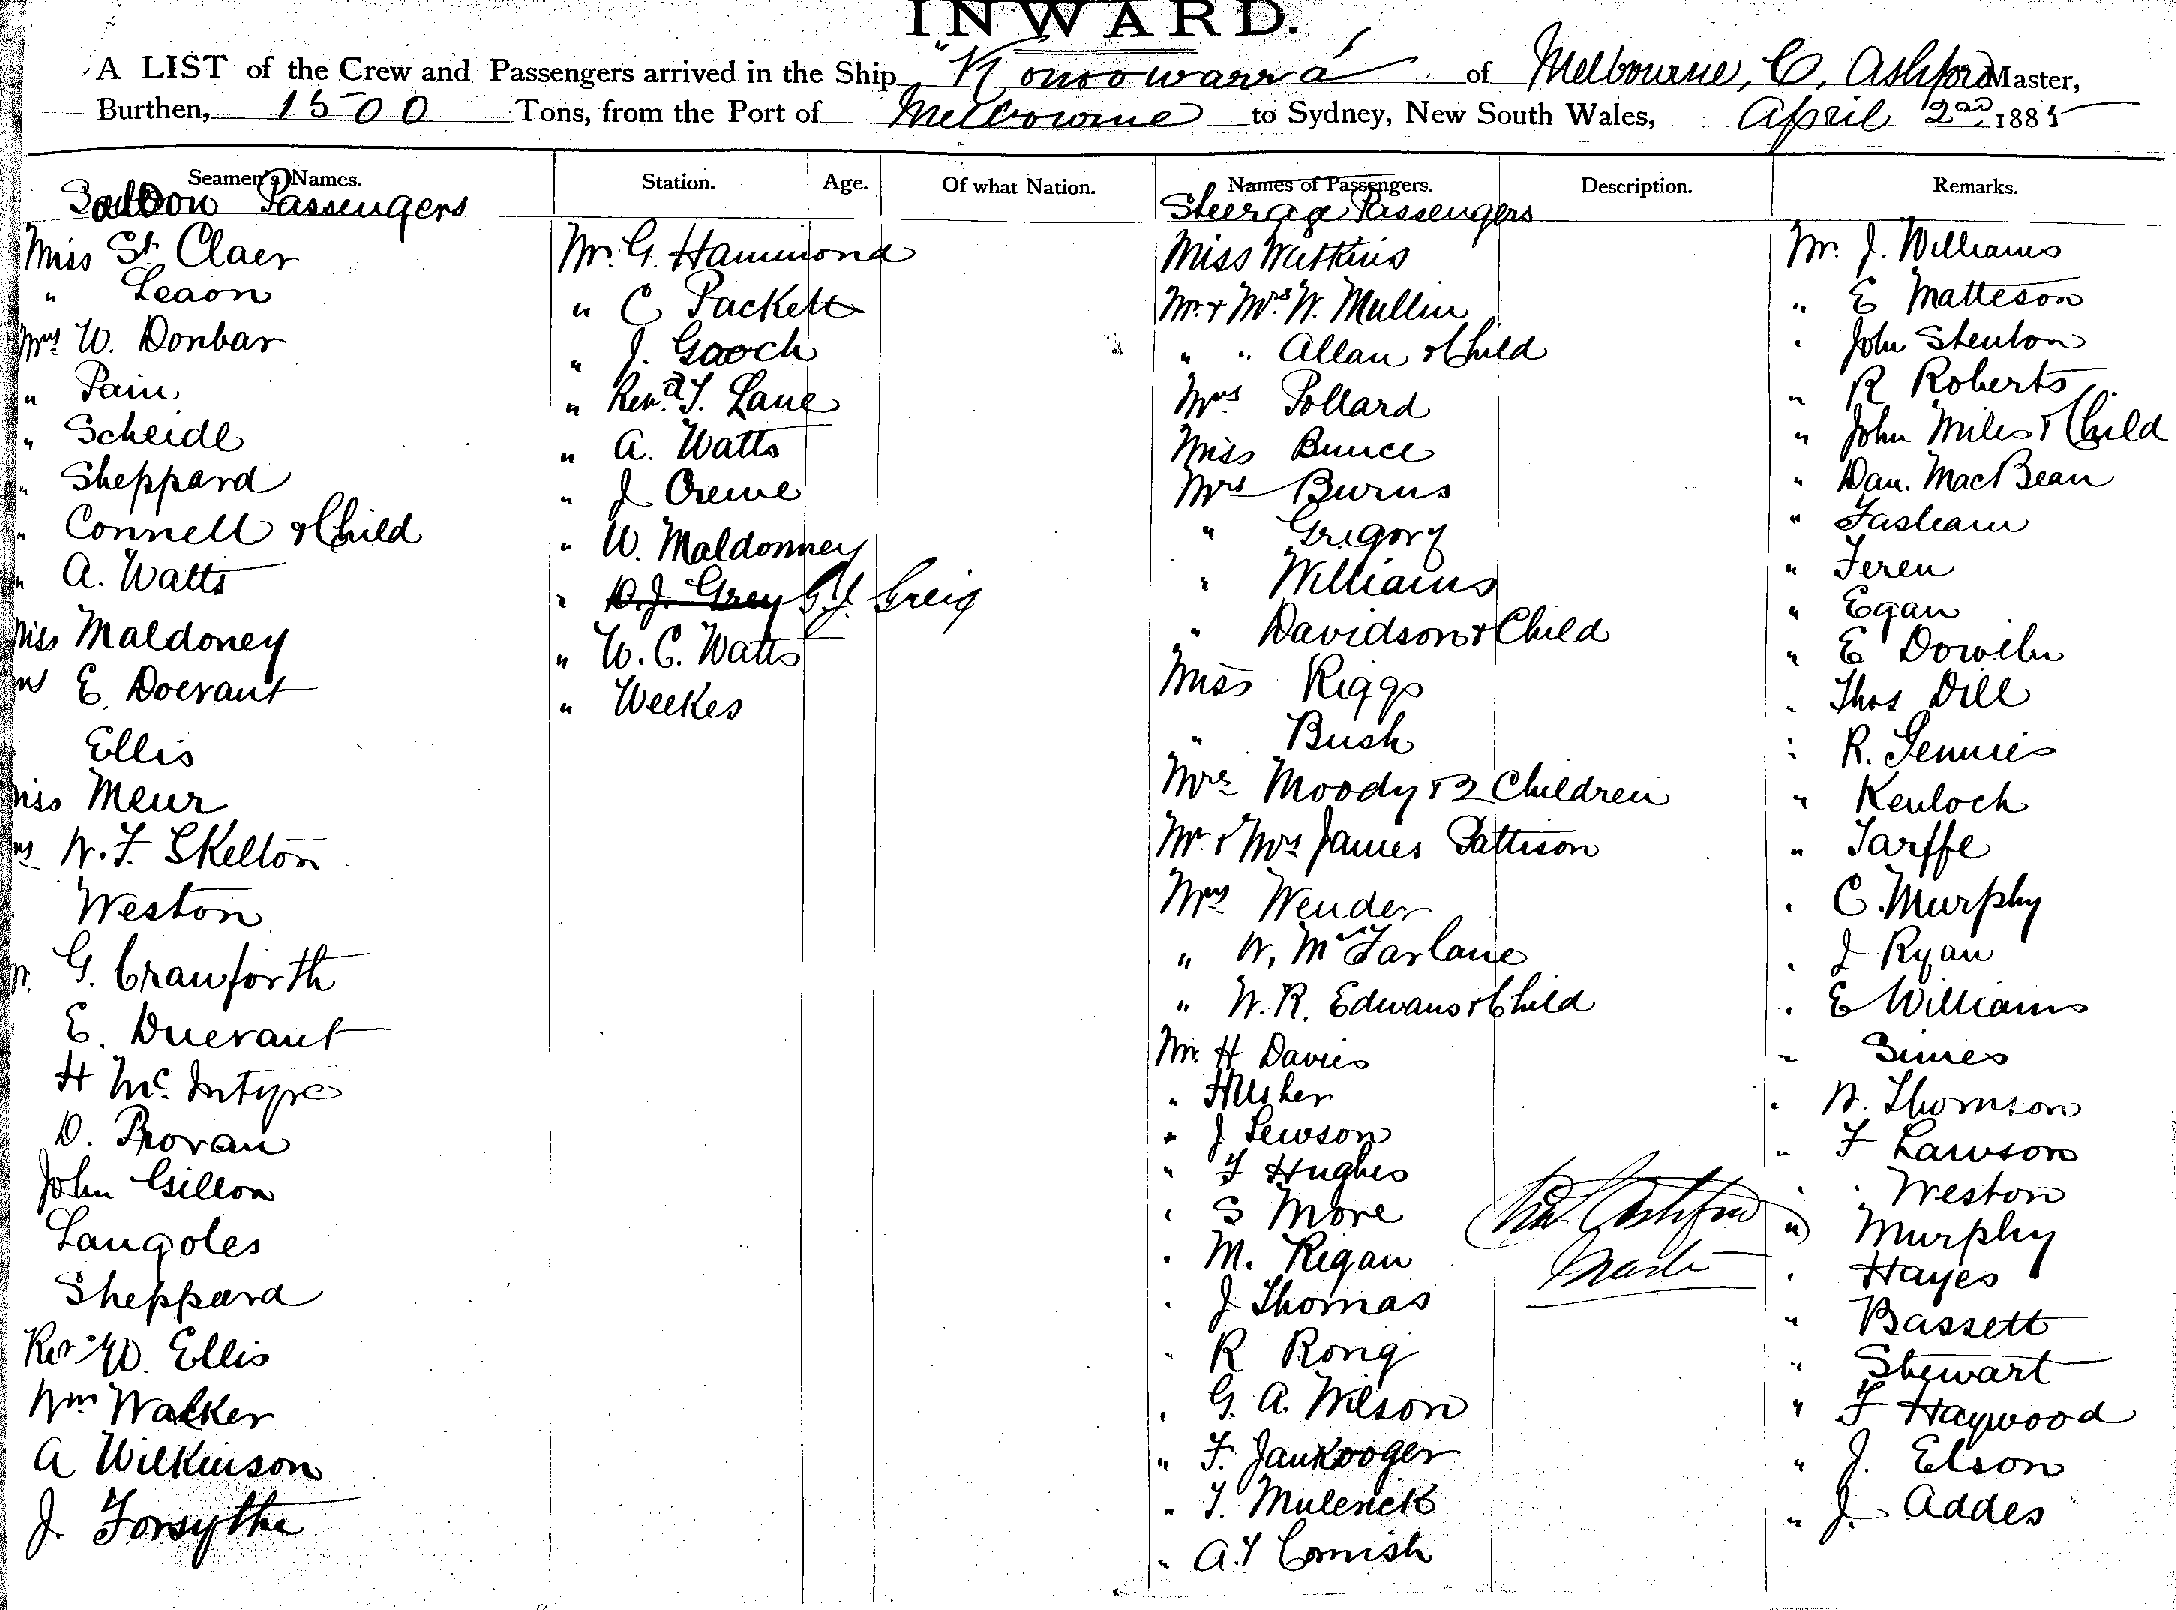 INWARD.
A LIST of the Crew and Passengers arrived in the Ship "Konoowarra" of Melbourne, C. Ashford Master,
Burthen, 1500 Tons, from the Port of Melbourne to Sydney, New South Wales, April 2nd 1885
Seamen's Names. Station. Age. Of what Nation. Names of Passengers. Description. Remarks.
Saloon Passengers
Miss St Claer
" Leaon
Mrs W. Donbar
" Pain
" Scheidl
" Sheppard
" Connell & Child
" A. Watts
Miss Maldoney
Mrs E. Doerant
Ellis
Miss Meur
Mrs W. F. Skelton
Weston
Mr. G. Crawforth
E. Duerant
H Mc. Intyre
D. Provan
John Gillon
Langoles
Sheppard
Rev W. Ellis
Wm Walker
A Wilkinson
J. Forsythe
Mr. G. Hammond
" C Packett
" J. Gooch
" Revd. T. Lane
" A. Watts
" J Crewe
" W. Maldonney
" D. J. Grey G. J. Greig
" W. C. Watts
" Weekes
Steerage Passengers
Miss Watkins
Mr. & Mrs. W. Mullin
" " Allan & Child
Mrs Pollard
Miss Bunce
Mrs Burns
" Grigory
" Williams
" Davidson & Child
Miss Riggs
" Bush
Mrs Moody & 2 Children
Mr. & Mrs James Pattison
Mrs Wender
" W. McFarlane
" W. R. Edwans & Child
Mr. H Davies
" H Usher
" J Lewson
" F Hughes
" S More
" M. Rigan
" J Thomas
" R Rong
" G. A. Wilson
" F. Jankooger
" T. Mulenick
" A. T Cornish
Ashford
Master
Mr. J. Williams
" E Matteson
" John Stenton
" R Roberts
" John Miles & Child
" Dan. MacBean
" Fasham
" Feren
" Egan
" E Dowlin
" Thos Dill
" R. Jennies
" Kenloch
" Tarffe
" C. Murphy
" J Ryan
" E Williams
" Simes
" W. Thomson
" F Lawson
" Weston
" Murphy
" Hayes
" Bassett
" Stewart
" F Haywood
" J. Elson
" J. Addes